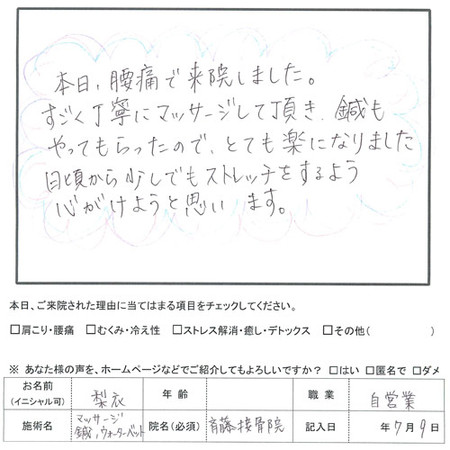 本日、腰痛で来院しました。
すごく丁寧にマッサージして頂き、鍼も
やってもらったので、とても楽になりました
日頃から少しでもストレッチをするよう
心がけようと思います。
本日、ご来院された理由に当てはまる項目をチェックしてください。
□肩こり・腰痛 □むくみ・冷え性 □ストレス解消・癒し・デトックス □その他( )
※ あなた様の声を、ホームページなどでご紹介してもよろしいですか？ □はい □匿名で □ダメ
お名前 (イニシャル可) 梨衣 年齢 職業 自営業
施術名 マッサージ 鍼、ウォーターベット 院名(必須) 斉藤接骨院 記入日 年7月9日